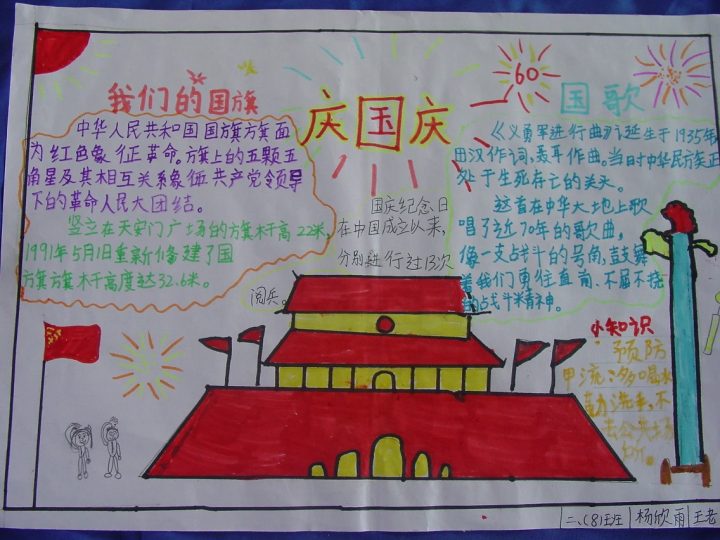 我们的国旗
中华人民共和国国旗旗面
为红色象征革命。旗上的五颗五
角星及其相互关系象征共产党领导
下的革命人民大团结。
竖立在天安门广场的旗杆高22米,
1991年5月1日重新修建了国
旗旗杆高度达32.6米。
庆国庆
60
国庆纪念日
在中国成立以来,
分别进行过13次
阅兵。
国歌
《义勇军进行曲》诞生于1935年
田汉作词,聂耳作曲。当时中华民族正
处于生死存亡的关头。
这首在中华大地上歌
唱了近70年的歌曲,
像一支战斗的号角,鼓舞
着我们勇往直前、不屈不挠
的战斗精神。
小知识
预防
甲流:多喝水
勤洗手,不
去公共场
所。
二、(8)班 杨欣雨 王老